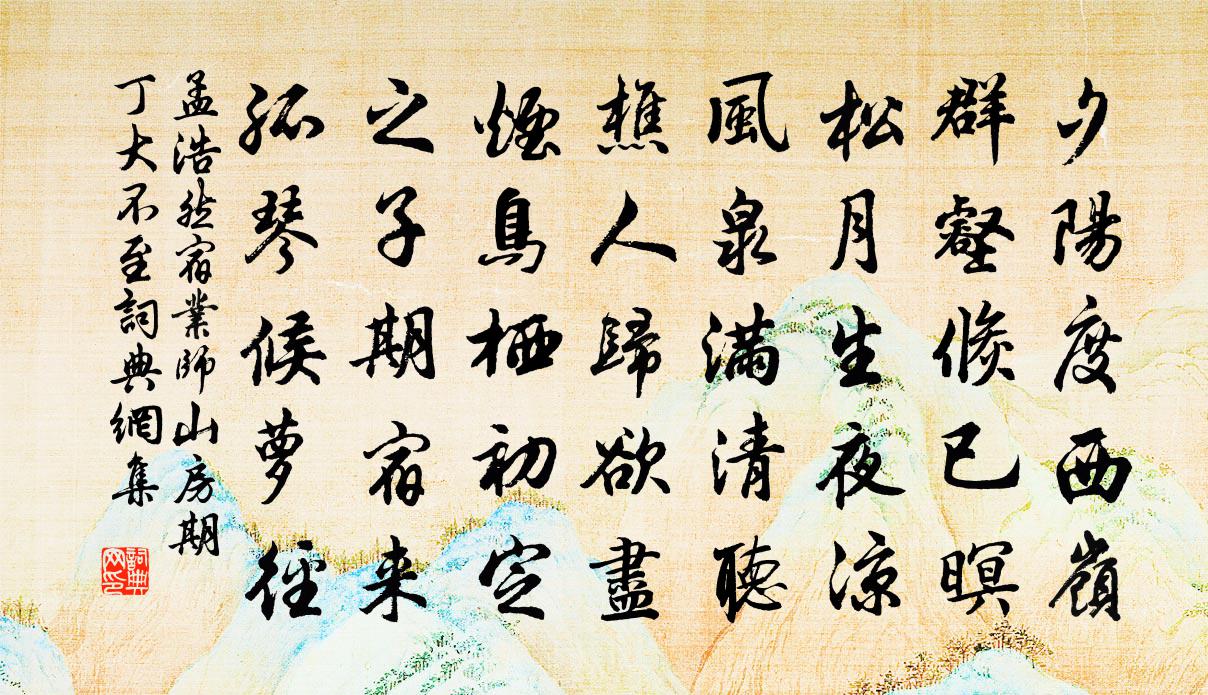 夕陽度西嶺
群壑倏已暝
松月生夜涼
風泉滿清聽
樵人歸欲盡
煙鳥栖初定
之子期宿来
孤琴候萝徑
孟浩然宿業師山房期
丁大不至詞典網集
詞典
网印